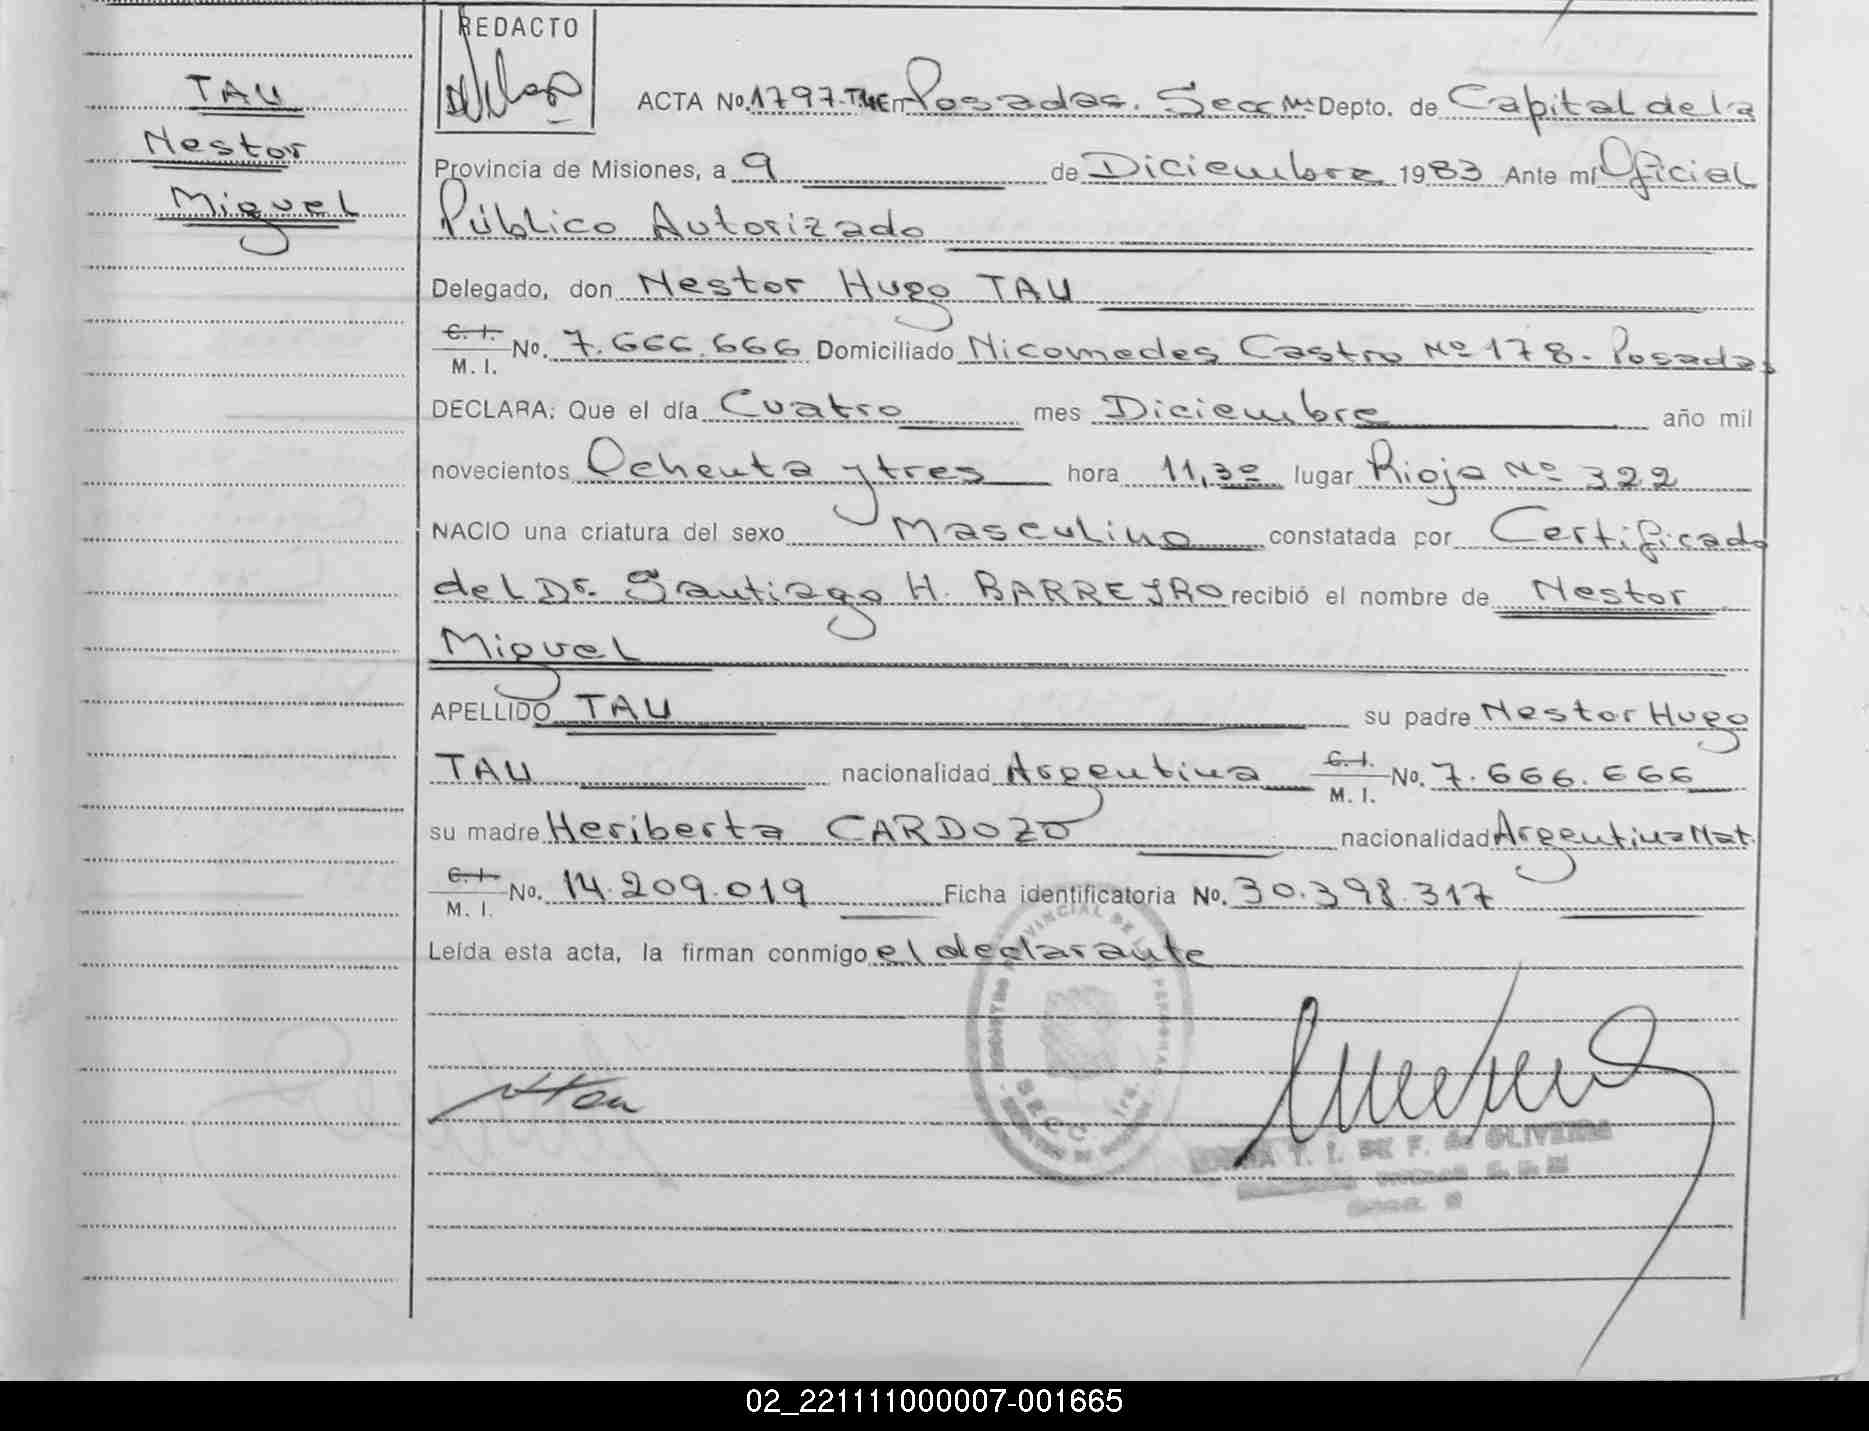 TAU
Nestor
Miguel
REDACTO
ACTA No. 1797-T.4 En Posadas. Secc Mª Depto. de Capital de la
Provincia de Misiones, a 9 de Diciembre 1983 Ante mí Oficial
Público Autorizado
Delegado, don Nestor Hugo TAU
C. I. / M. I. No. 7.666.666 Domiciliado Nicomedes Castro Nº 178. Posadas
DECLARA: Que el día Cuatro mes Diciembre año mil
novecientos Ochenta y tres hora 11,30 lugar Rioja Nº 322
NACIO una criatura del sexo Masculino constatada por Certificado
del Dr. Santiago H. BARREYRO recibió el nombre de Nestor
Miguel
APELLIDO TAU su padre Nestor Hugo
TAU nacionalidad Argentina C. I. / M. I. No. 7.666.666
su madre Heriberta CARDOZO nacionalidad Argentina Nat.
C. I. / M. I. No. 14.209.019 Ficha identificatoria No. 30.398.317
Leída esta acta, la firman conmigo el declarante
SECC. 1ra.
T. I. DE F. de OLIVEIRA
02_221111000007-001665